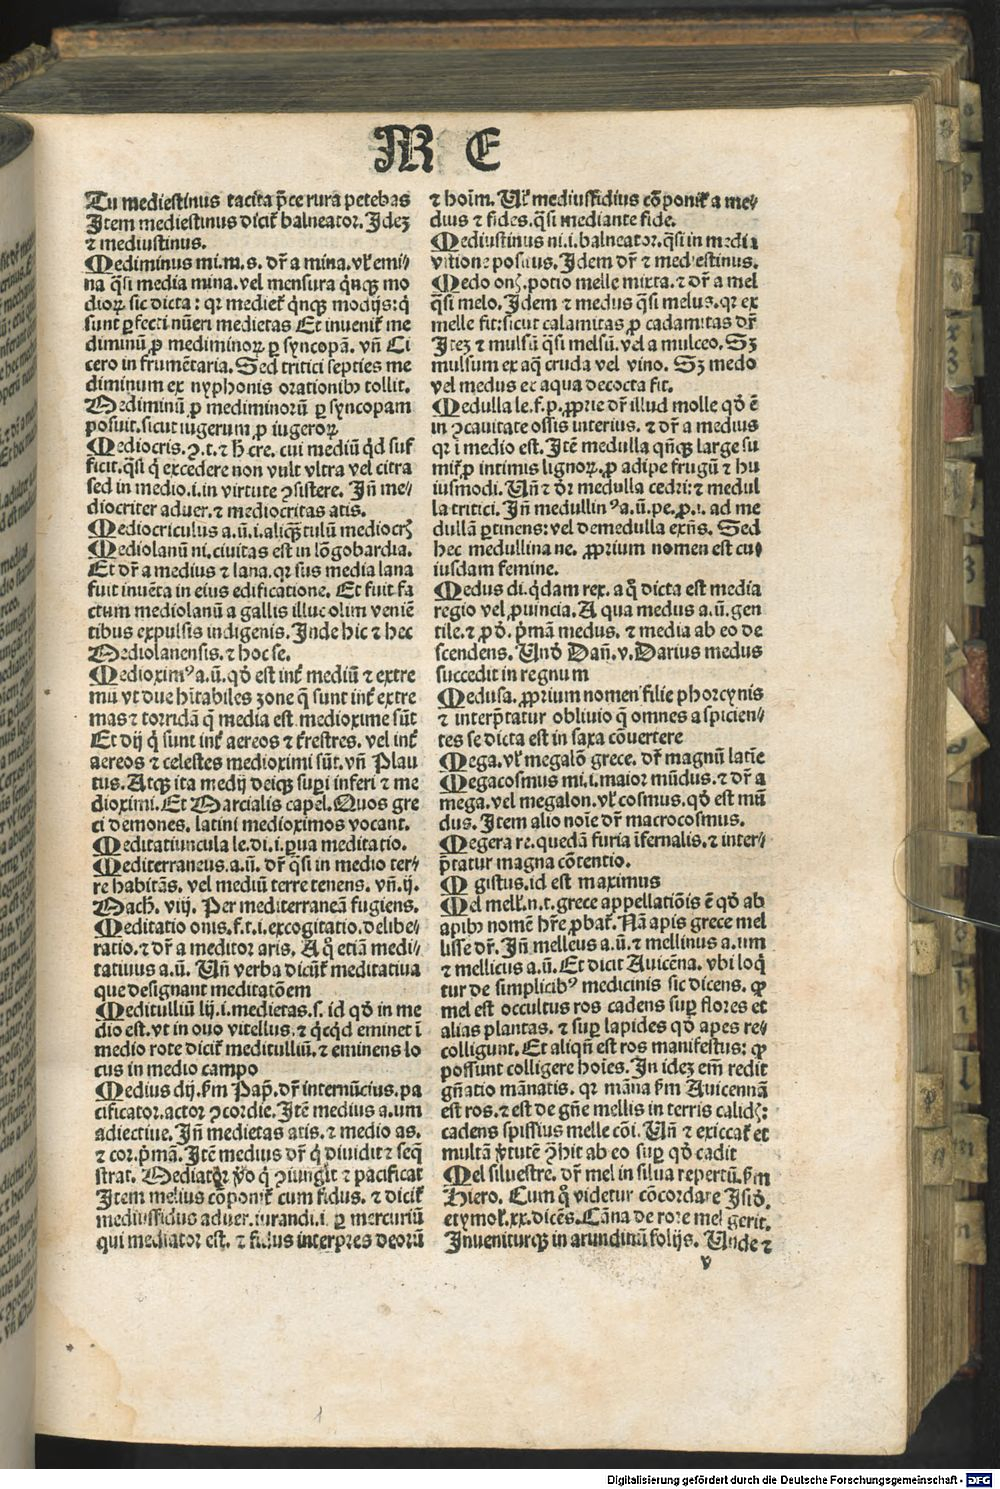 M E
Tu mediestinus tacita p̄ce rura petebas
Item mediestinus dicit̃ balneator. Idez
⁊ mediustinus.
Mediminus mi.m.s. dr̄ a mina. vl̓ emi⸗
na q̄si media mina. vel mensura q̇nq̨ mo
dioꝝ sic dicta: qꝛ mediet̃ q̇nq̨ modijs: q̇
sunt ꝑfecti nūeri medietas Et invenit̃ me
diminū ꝓ mediminoꝝ ꝑ syncopā. vn̄ Ci
cero in frumētaria. Sed tritici septies me
diminum ex nyphonis orationibꝫ tollit.
Mediminū ꝓ mediminorū ꝑ syncopam
posuit. sicut iugerum ꝓ iugeroꝝ
Mediocris. ꝯ.t. ⁊ h̄ cre. cui mediū q̇d suf
ficit. q̄si q̇ excedere non vult vltra vel citra
sed in medio .i. in virtute ꝯsistere. Jn̄ me⸗
diocriter aduer. ⁊ mediocritas atis.
Mediocriculus a.ū. i. aliq̄tulū mediocr̄
Mediolanū ni. civitas est in lōgobardia.
Et dr̄ a medius ⁊ lana. qꝛ sus media lana
fuit inuēta in eius edificatione. Et fuit fa
ctum mediolanū a gallis illuc olim veniē
tibus expulsis indigenis. Inde hic ⁊ hec
Mediolanensis. ⁊ hoc se.
Medioximꝰ a.ū. qđ est int̃ mediū ⁊ extre
mū vt due h̄itabiles zone q̄ sunt int̃ extre
mas ⁊ torridā q̄ media est. medioxime sūt
Et dij q̇ sunt int̃ aereos ⁊ t̃restres. vel int̃
aereos ⁊ celestes medioximi sūt. vn̄ Plau
tus. Atq̨ ita medij deiq̨ suꝑi inferi ⁊ me
dioximi. Et Marcialis capel. Quos gre
ci demones. latini medioximos vocant.
Meditatiuncula le. di. i. ꝑua meditatio.
Mediterraneus .a.ū. dr̄ q̄si in medio ter⸗
re habitās. vel mediū terre tenens. vn̄ .ij.
Mach. viij. Per mediterraneā fugiens.
Meditatio onis. f.t.i. excogitatio. delibe⸗
ratio. ⁊ dr̄ a meditor aris. A q̊ etiā medi⸗
tatiuus a.ū. Vn̄ verba dicūt̃ meditatiua
que designant meditatōem
Meditulliū lij. i. medietas. s. id qđ in me
dio est. vt in ouo vitellus. ⁊ q̇cq̇d eminet ī
medio rote dicit̃ meditulliū. ⁊ eminens lo
cus in medio campo
Medius dij. ẜm Pap. dr̄ internūcius. pa
cificator. actor ꝯcordie. Itē medius a.um
adiectiue. Jn̄ medietas atis. ⁊ medio as.
⁊ cor. p̄mā. Itē medius dr̄ q̇ diuidit ⁊ seq̄
strat. Mediator v̄o q̇ ꝯiungit ⁊ pacificat
Item melius cōponit̃ cum fidus. ⁊ dicit̃
mediusfidus aduer. iurandi. i. ꝑ mercuriū
qui mediator est. ⁊ fidus interpres deorū
⁊ hoīm. Vl̓ mediusfidius cōponit̃ a me⸗
dius ⁊ fides. q̄si mediante fide.
Mediustinus ni. i. balneator. q̄si in media
vstione positus. Idem dr̄ ⁊ mediestinus.
Medo onꝭ. potio melle mixta. ⁊ dr̄ a mel
q̄si melo. Idem ⁊ medus q̄si melus. qꝛ ex
melle fit: sicut calamitas ꝓ cadamitas dr̄
Itez ⁊ mulsū q̄si melsū. vel a mulceo. Sꝫ
mulsum ex aq̄ cruda vel vino. Sꝫ medo
vel medus ex aqua decocta fit.
Medulla le. f.p. ꝓprie dr̄ illud molle qđ ē
in ꝯcauitate ossis interius. ⁊ dr̄ a medius
qꝛ ī medio est. Itē medulla q̇nq̨ large su
mit̃ ꝓ intimis lignoꝝ. ꝓ adipe frugū ⁊ hu
iusmodi. Vn̄ ⁊ dr̄ medulla cedri: ⁊ medul
la tritici. Jn̄ medullinꝰ a.ū. pe.ꝓ.i. ad me
dullā ꝑtinens: vel de medulla exn̄s. Sed
hec medullina ne. ꝓprium nomen est cui
iusdam femine.
Medus di. q̇dam rex. a q̊ dicta est media
regio vel ꝓuincia. A qua medus a.ū. gen
tile. ⁊ ꝓđ. p̄mā medus. ⁊ media ab eo de
scendens. Vnđ Dañ. v. Darius medus
succedit in regnum
Medusa. ꝓprium nomen filie phorcynis
⁊ interp̄tatur obliuio q̄ omnes aspicien⸗
tes se dicta est in saxa cōuertere
Mega. vl̓ megalō grece. dr̄ magnū latīe
Megacosmus mi. i. maior mūdus. ⁊ dr̄ a
mega. vel megalon. vl̓ cosmus. qđ est mū
dus. Item alio noīe dr̄ macrocosmus.
Megera re. quedā furia īfernalis. ⁊ inter⸗
p̄tatur magna cōtentio.
M gistus. id est maximus
Mel mell̓. n.t. grece appellatiōis ē qđ ab
apibꝫ nomē hr̄e ꝓbat̃. Nā apis grece mel
lisse dr̄. Jn̄ melleus a.ū. ⁊ mellinus a.um
⁊ mellicus a.ū. Et dicit Auicēna. vbi loq̇
tur de simplicibꝰ medicinis sic dicens. ꝙ
mel est occultus ros cadens suꝑ flores et
alias plantas. ⁊ suꝑ lapides qđ apes re⸗
colligunt. Et aliqn̄ est ros manifestus: ꝙ
possunt colligere hoīes. In idez em̄ redit
gn̄atio mānatis. qꝛ māna ẜm Auicennā
est ros. ⁊ est de gn̄e mellis in terris calidꝭ:
cadens spissius melle cōi. Vn̄ ⁊ exiccat̃ et
multā v̓tutē ꝯhit ab eo suꝑ qđ cadit
Mel siluestre. dr̄ mel in silua repertū. ẜm
Hiero. Cum q̊ videtur cōcordare Isiđ.
etymol̓. xx. dicēs. Cāna de rore mel gerit.
Inueniturq̨ in arundinū folijs. Vnde ⁊
v
Digitalisierung gefördert durch die Deutsche Forschungsgemeinschaft - DFG